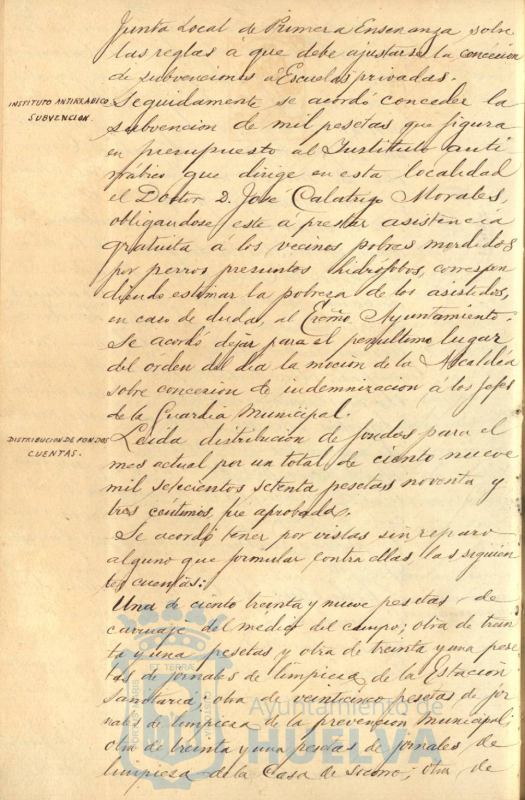 Junta Local de Primera Enseñanza sobre
las reglas á que debe ajustarse la concecion
de subvenciones á Escuelas privadas.
INSTITUTO ANTIRRABICO
SUBVENCION.
Seguidamente se acordó conceder la
subvencion de mil pesetas que figura
en presupuesto al Instituto anti
rrábico que dirige en esta localidad
el Doctor D. José Calatrigo Morales,
obligandose este á prestar asistencia
gratuita á los vecinos pobres mordidos
por perros presuntos hidrófobos, correspon
diendo estimar la pobreza de los asistidos,
en caso de duda, al Excmo Ayuntamiento.
Se acordó dejar para el penultimo lugar
del órden del dia la mocion de la Alcaldia
sobre concesion de indemnizacion á los Jefes
de la Guardia Municipal.
DISTRIBUCION DE FONDOS
CUENTAS.
Leida distribucion de fondos para el
mes actual por un total de ciento nueve
mil seiscientos setenta pesetas noventa y
tres céntimos, fue aprobada.
Se acordó tener por vistas sin reparo
alguno que formular contra ellas las siguien
tes cuentas:
Una de ciento treinta y nueve pesetas de
carruaje del medico del campo; otra de trein
ta y una pesetas y otra de treinta y una pese
tas de jornales de limpieza de la Estación
Sanitaria; otra de veinticinco pesetas de jor
nales de limpieza de la prevencion municipal;
otra de treinta y una pesetas de jornales de
limpieza de la Casa de Socorro; otra de
ET TERRAE
Ayuntamiento de
HUELVA